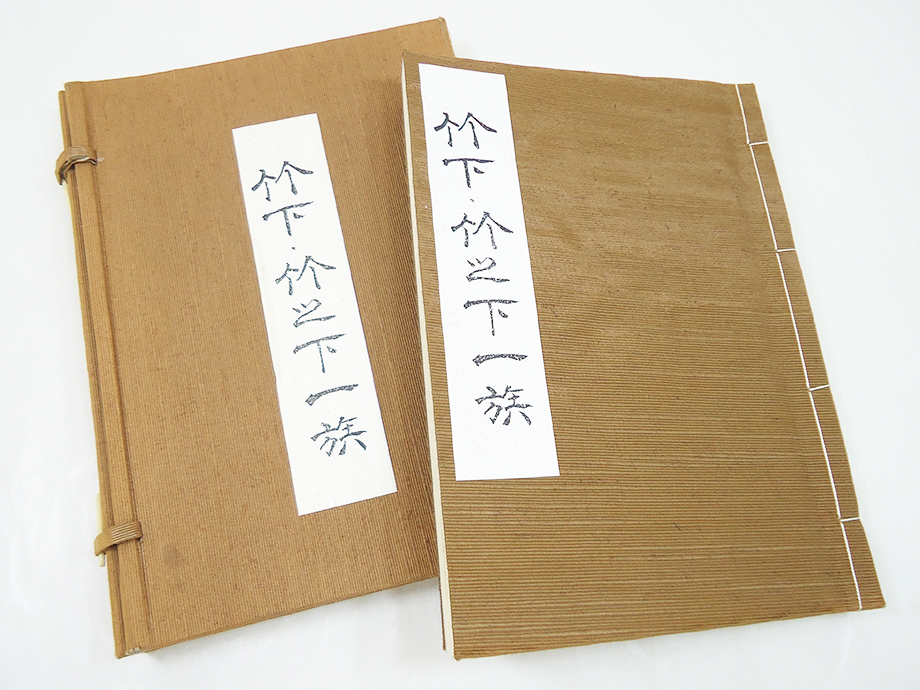 竹下・竹之下一族
竹下・竹之下一族